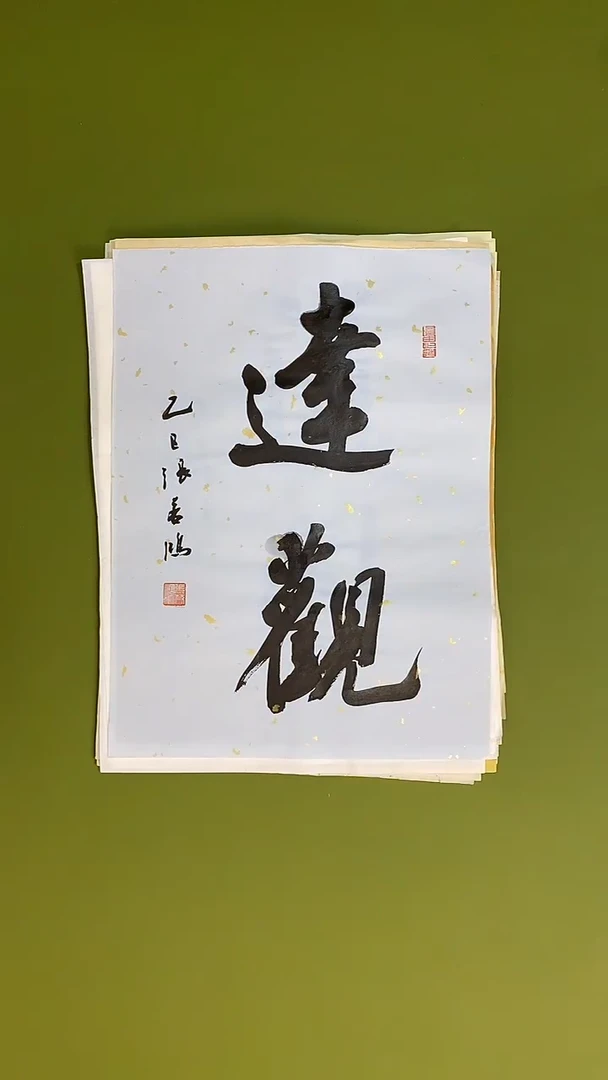 達
觀
乙巳張善鴻